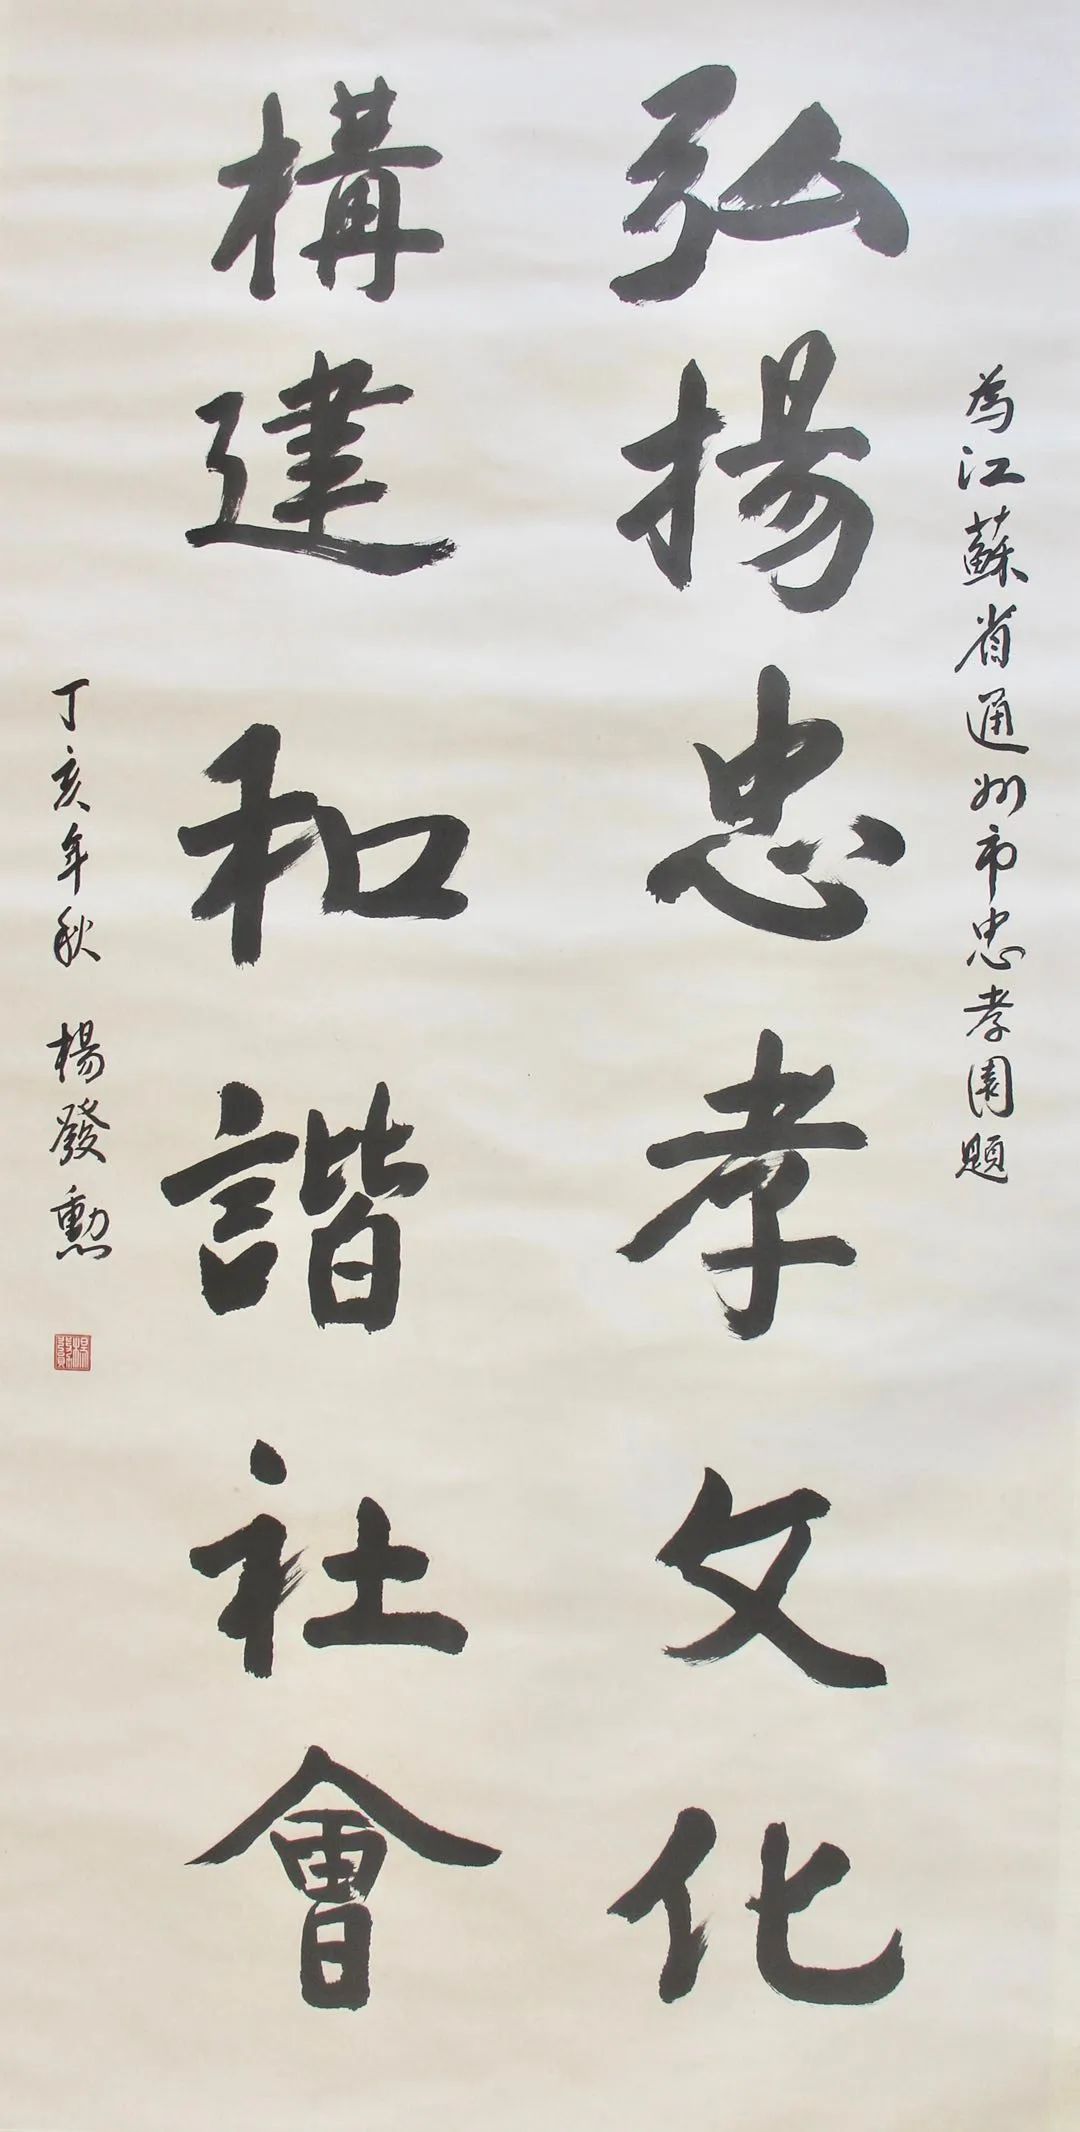 為江蘇省通州市忠孝園題
弘揚忠孝文化
構建和諧社會
丁亥年秋 楊發勳